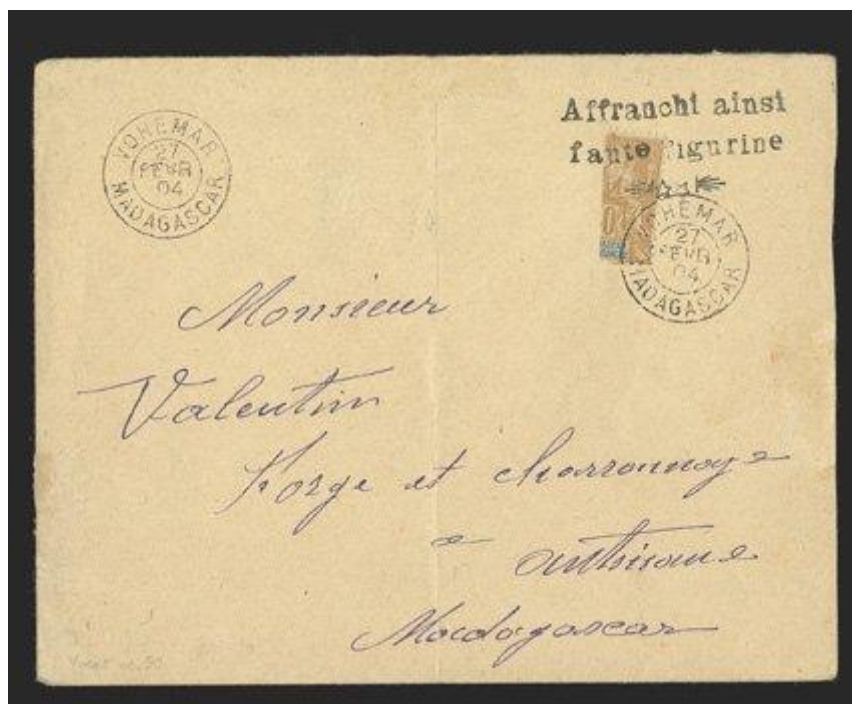 VOHEMAR
27
FEVR
04
MADAGASCAR
Affranchi ainsi
faute figurine
VOHEMAR
27
FEVR
04
MADAGASCAR
Monsieur
Valentin
Forge et charronnage
a
Antsirane
Madagascar